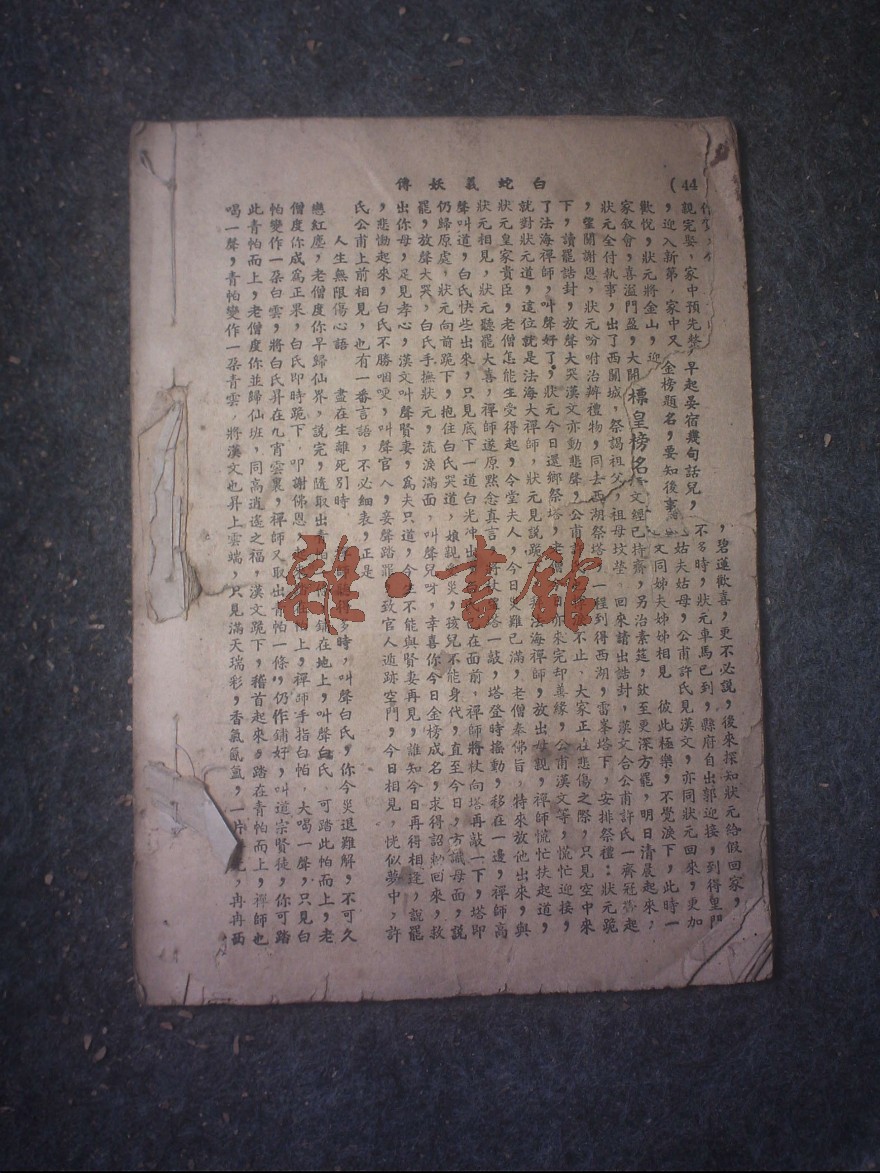 白蛇義妖傳
(44
碧蓮歡喜，更不必說，後來探知狀元給假回家，
親完娶，家中預先
早起晏宿幾句話兒，不多時，狀元車馬已到，縣府自出郭迎接，到得皇門
，迎入新第，家中又
金榜題名，要知後事
姑夫姑母，公甫許氏見漢文，亦同狀元回來，更加
歡悅，狀元將金山，迎
文同姊夫姊姊相見，彼此極樂，不覺淚下，此時一
家敘會，喜溢門盈，大開
標皇榜名
文經已持齋，另治素筵，飲至更深方罷，明日清晨起來，
狀元全付執事，出了西關城，祭謁祖父，祖母坟塋，回來請出誥封，漢文合公甫許氏一齊冠帶起
，望闕謝恩，狀元吩咐治辦禮物，同去西湖祭塔，一程到得西湖，雷峯塔下，安排祭禮：狀元跪
下，讀罷誥封，放聲大哭漢文亦動悲聲，公甫
不止、大家正在悲傷之際，只見空中來
了法海禪師，叫聲好了，狀元今日還鄉祭塔，老僧
亦來完却善緣，公甫漢文等，慌忙迎接，
就對狀元道，這位就是法海大禪師，狀元見說跪下
法海禪師，放出母親，禪師慌忙扶起道，
狀元皇家貴臣，老僧怎能生受得起，令堂夫人，今日災難已滿，老僧奉佛旨，特來放他出來，與
狀元相見，狀元聽罷大喜，禪師遂原默念真言
將杖
塔一敲，塔登時搖動，移在一邊，禪師高
聲叫道，白氏快些出來，只見底下一道白光冲出
在面前，禪師將杖向塔再敲一下，塔即
仍歸原處，狀元向前跪下，抱住白氏哭道，娘親
災，孩兒不能身代，直至今日，方識母面，說
罷，放聲大哭，白氏手撫狀元，流淚滿面，叫聲兒呀，幸喜你今日金榜成名，求得詔勅回來，救
出你母，足見孝心，漢文叫聲賢妻，為夫只道，今生不能與賢妻再見，誰知今日再得相逢，說罷
，悲慟起來，白氏不勝咽哽，叫聲官人，妾聲踏罪
致官人遁跡空門，今日相見，恍似夢中，許
氏公甫上前相見，也有一番言語，不必細表，正是
人生無限傷心語　盡在生離死別時
得多時，叫聲白氏，你今災退難解，不可久
戀紅塵，老僧度你早歸仙界，說完，隨取出
鋪在地上，叫聲白氏，可踏此帕而上，老
僧度你成為正果，白氏即時跪下，叩謝佛恩
在帕上，禪師手指白帕，大喝一聲，只見白
帕變作一朶白雲，將白氏昇在九宵雲裏，禪師又取出青帕一條，仍作鋪好，叫道宗賢徒，你可踏
此青帕而上，老僧度你並歸仙班，同高逍遙之福，漢文跪下，稽首起來，踏在青帕而上，禪師也
喝一聲，青帕變作一朶青雲，將漢文也昇上雲端，只見滿天瑞彩，香氣氤氳，一片
，冉冉西
雜·書館